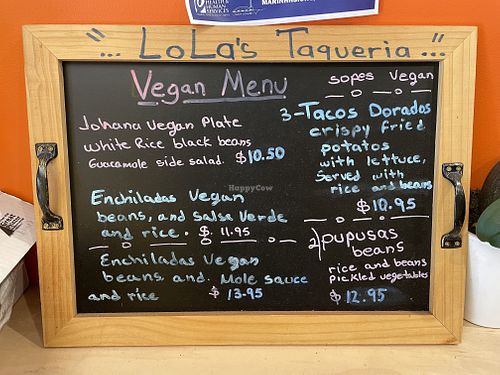 HEALTH & HUMAN
SERVICES
..LoLa's Taqueria...
Vegan Menu
Johana Vegan Plate
White Rice black beans
Guacamole side salad. $10.50
Enchiladas Vegan
beans, and Salsa Verde
and rice. $ 11.95
Enchiladas Vegan
beans and. Mole sauce
and rice $ 13.95
sopes Vegan
3-Tacos Dorados
crispy fried
potatos
with lettuce,
Served with
rice and beans
$ 10.95
2) pupusas
beans
rice and beans
pickled vegetables
$ 12.95
HappyCow